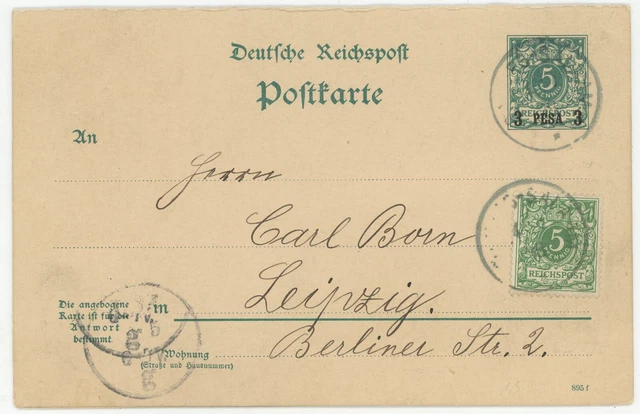 Deutsche Reichspost
Postkarte
5
REICHSPOST
3 PESA 3
An
Herrn
Carl Born
5
REICHSPOST
Leipzig.
Die angebogene
Karte ist für
Antwort
bestimmt
in
Berliner Str. 2.
Wohnung
(Straße und Hausnummer)
895 f